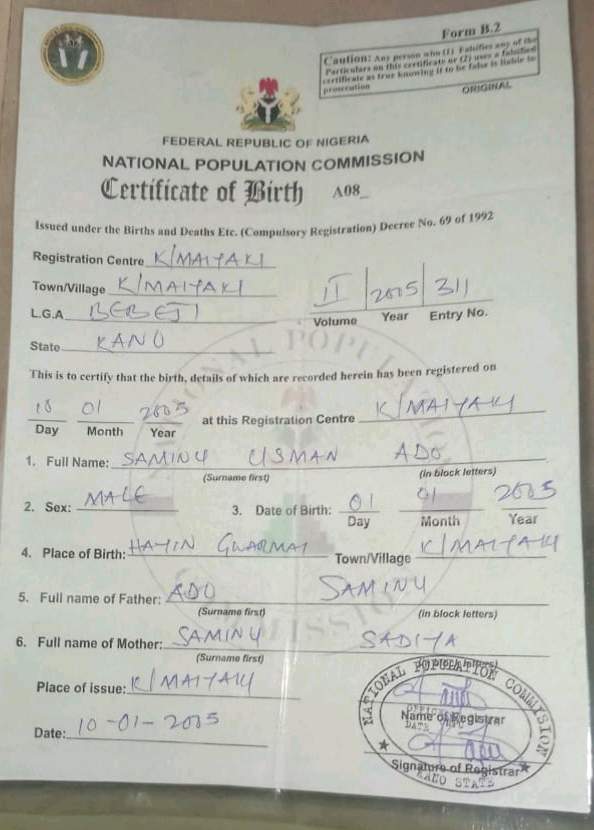 Form B.2
Caution: Any person who (1) Falsifies any of the
Particulars on this certificate or (2) uses a falsified
certificate as true knowing it to be false is liable to
prosecution
ORIGINAL
FEDERAL REPUBLIC OF NIGERIA
NATIONAL POPULATION COMMISSION
Certificate of Birth A08_
Issued under the Births and Deaths Etc. (Compulsory Registration) Decree No. 69 of 1992
Registration Centre K/MAIYAKI
Town/Village K/MAIYAKI
L.G.A BEBEJI
II 2005 311
Volume Year Entry No.
State KANO
This is to certify that the birth, details of which are recorded herein has been registered on
10 01 2005 at this Registration Centre K/MAIYAKI
Day Month Year
1. Full Name: SAMINU USMAN ADO
(Surname first) (in block letters)
2. Sex: MALE 3. Date of Birth: 01 01 2005
Day Month Year
4. Place of Birth: HAYIN GWARMAI Town/Village K/MAIYAKI
5. Full name of Father: ADO SAMINU
(Surname first) (in block letters)
6. Full name of Mother: SAMINU SADIYA
(Surname first) (in block letters)
Place of issue: K/MAIYAKI
Name of Registrar
Date: 10-01-2005
Signature of Registrar
NATIONAL POPULATION COMMISSION
KANO STATE
NATIONAL POPULATION COMMISSION